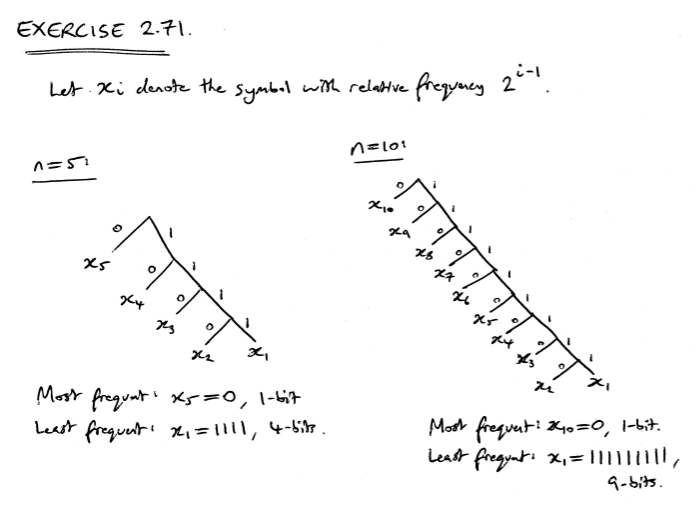 EXERCISE 2.71.
Let xi denote the symbol with relative frequency 2^i-1.
n=5:
0 1
x5
0 1
x4
0 1
x3
0 1
x2 x1
Most frequent: x5=0, 1-bit
Least frequent: x1=1111, 4-bits.
n=10:
0 1
x10
0 1
x9
0 1
x8
0 1
x7
0 1
x6
0 1
x5
0 1
x4
0 1
x3
0 1
x2 x1
Most frequent: x10=0, 1-bit.
Least frequent: x1=111111111,
9-bits.